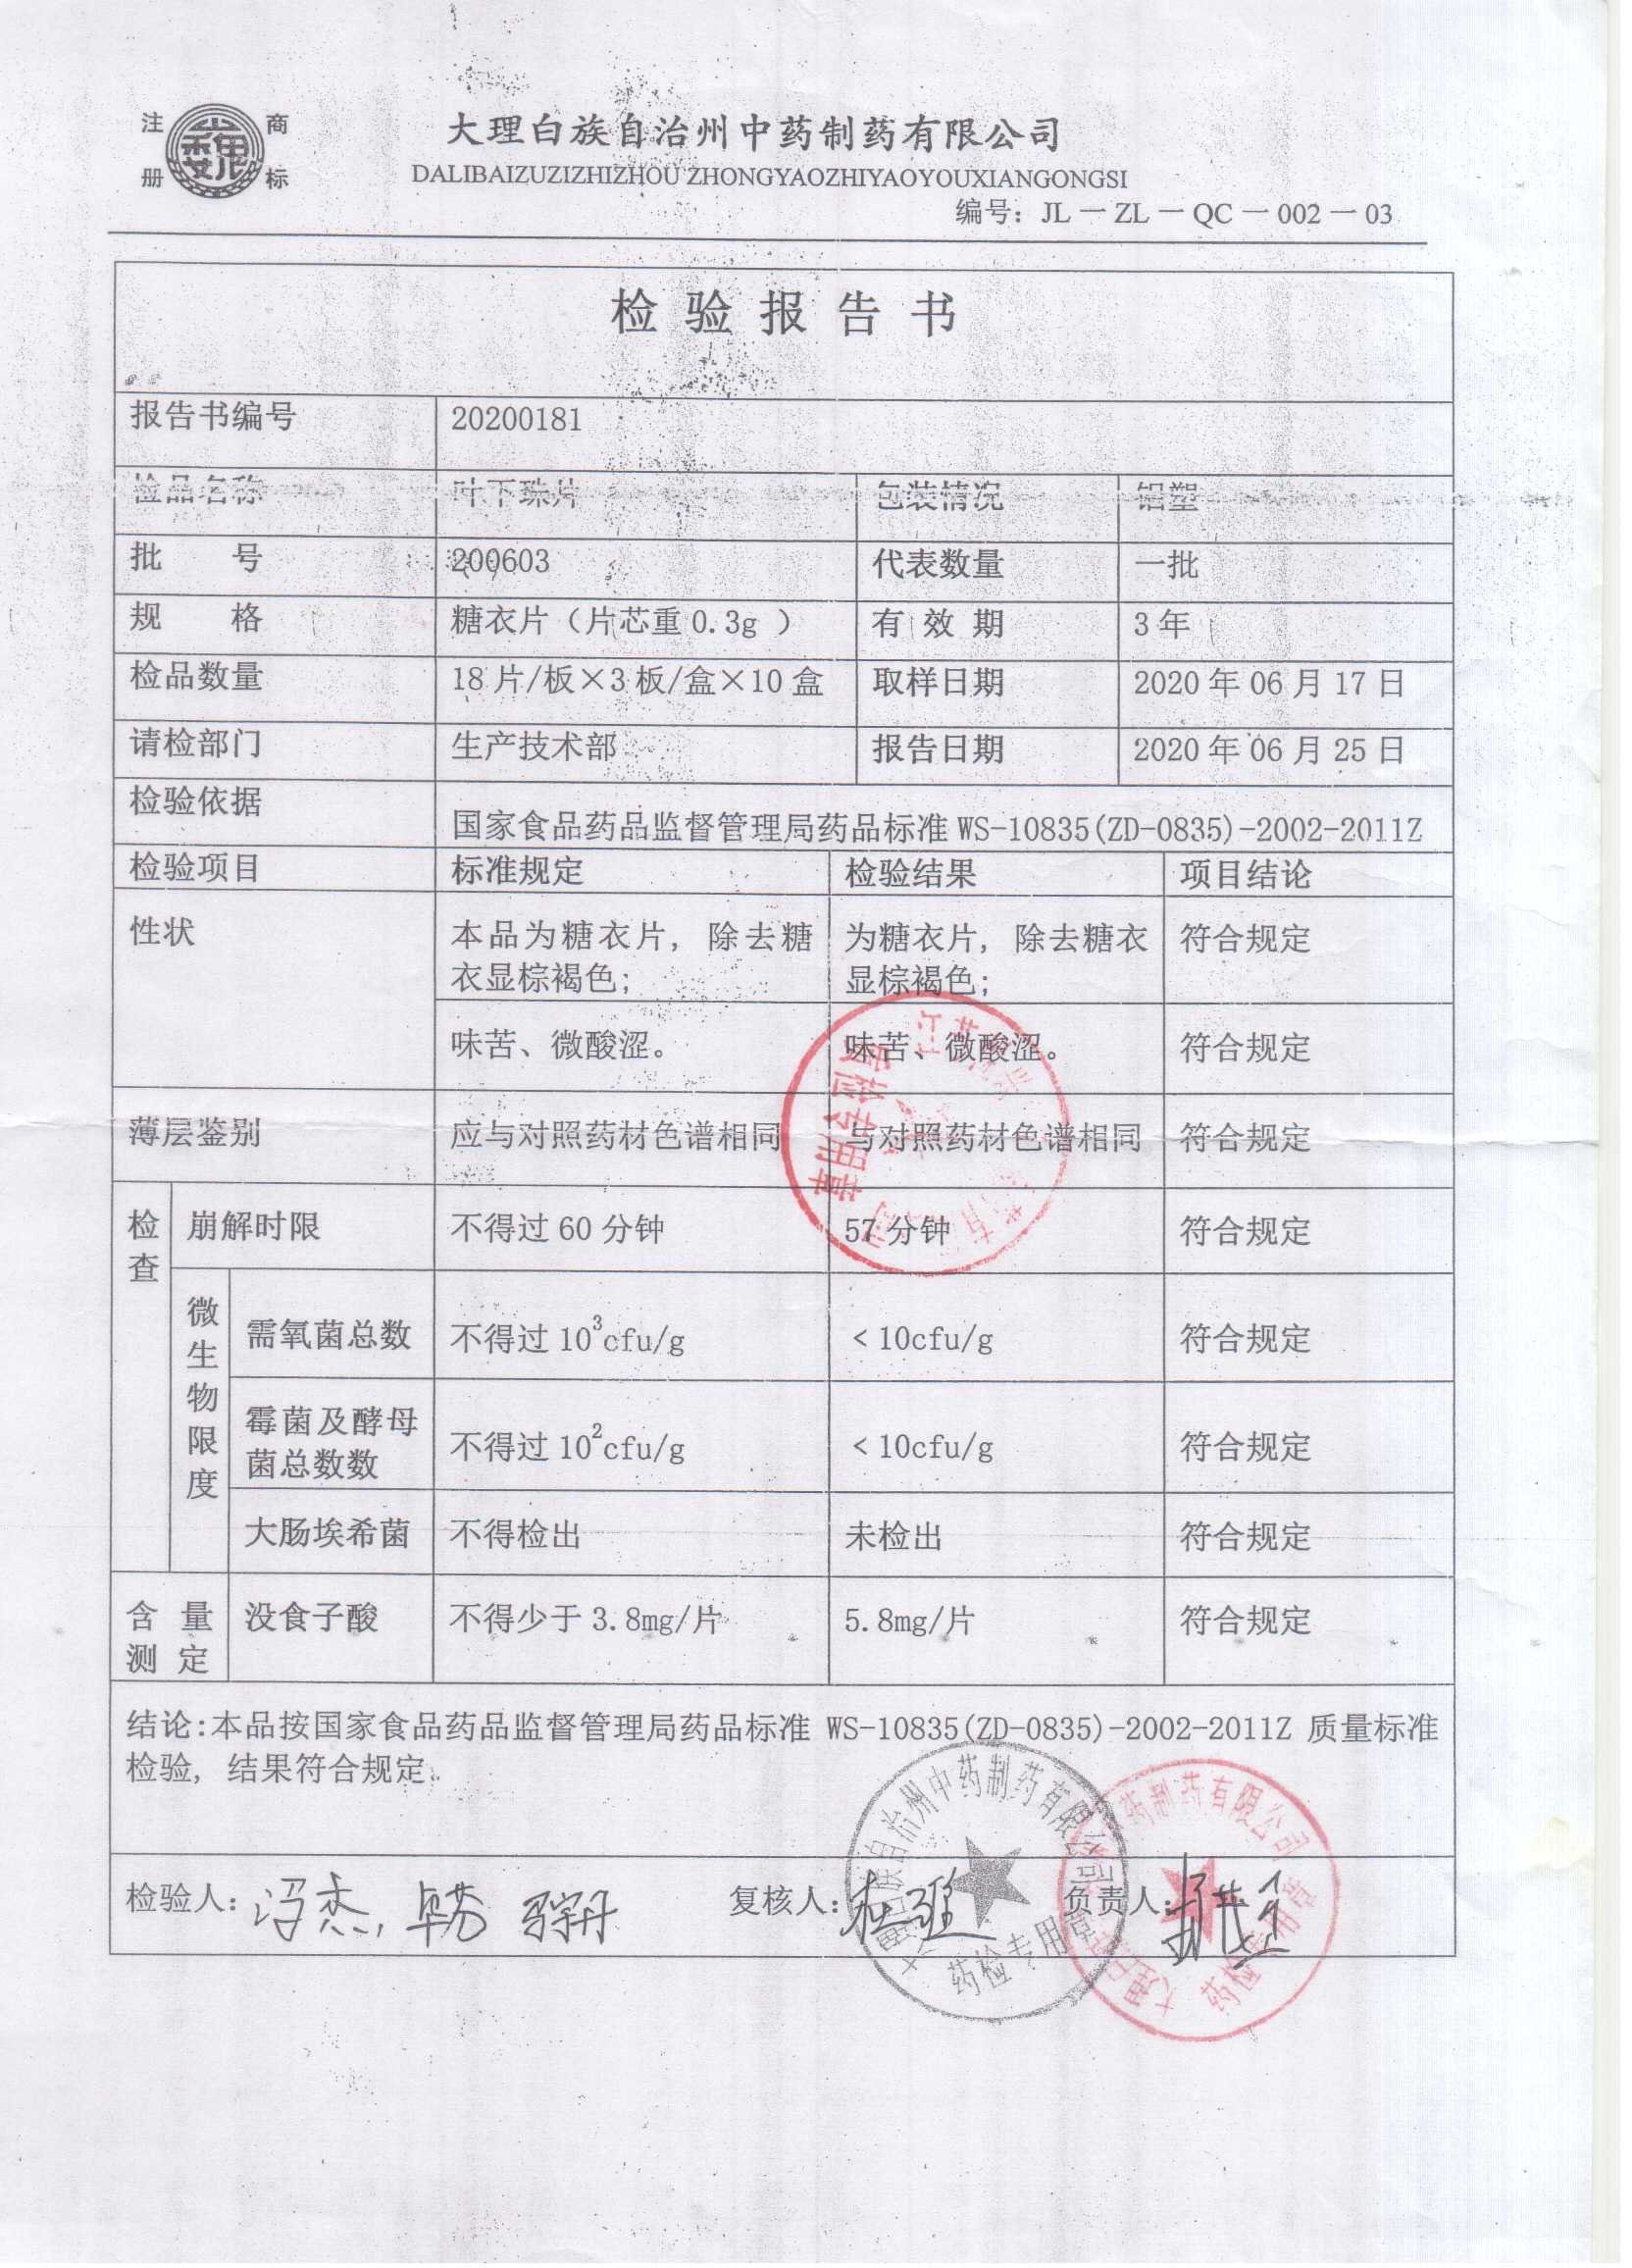 注 商
册 标
大理白族自治州中药制药有限公司
DALIBAIZUZIZHIZHOU ZHONGYAOZHIYAOYOUXIANGONGSI
编号：JL－ZL－QC－002－03
检验报告书
报告书编号 20200181
检品名称 叶下珠片 包装情况 铝塑
批 号 200603 代表数量 一批
规 格 糖衣片（片芯重0.3g ） 有 效 期 3年
检品数量 18片/板×3板/盒×10盒 取样日期 2020年06月17日
请检部门 生产技术部 报告日期 2020年06月25日
检验依据 国家食品药品监督管理局药品标准WS-10835(ZD-0835)-2002-2011Z
检验项目 标准规定 检验结果 项目结论
性状 本品为糖衣片，除去糖 为糖衣片，除去糖衣 符合规定
衣显棕褐色； 显棕褐色；
味苦、微酸涩。 味苦、微酸涩。 符合规定
薄层鉴别 应与对照药材色谱相同 与对照药材色谱相同 符合规定
检查 崩解时限 不得过60分钟 57分钟 符合规定
微生物限度 需氧菌总数 不得过10³cfu/g ＜10cfu/g 符合规定
霉菌及酵母
菌总数数 不得过10²cfu/g ＜10cfu/g 符合规定
大肠埃希菌 不得检出 未检出 符合规定
含 量 没食子酸 不得少于3.8mg/片 5.8mg/片 符合规定
测 定
结论:本品按国家食品药品监督管理局药品标准 WS-10835(ZD-0835)-2002-2011Z 质量标准
检验，结果符合规定。
检验人：冯杰， 复核人： 负责人：
质检专用章
族自治州中药制药有限公司
药检专用章
大理 药制药有限公司
药检 用章